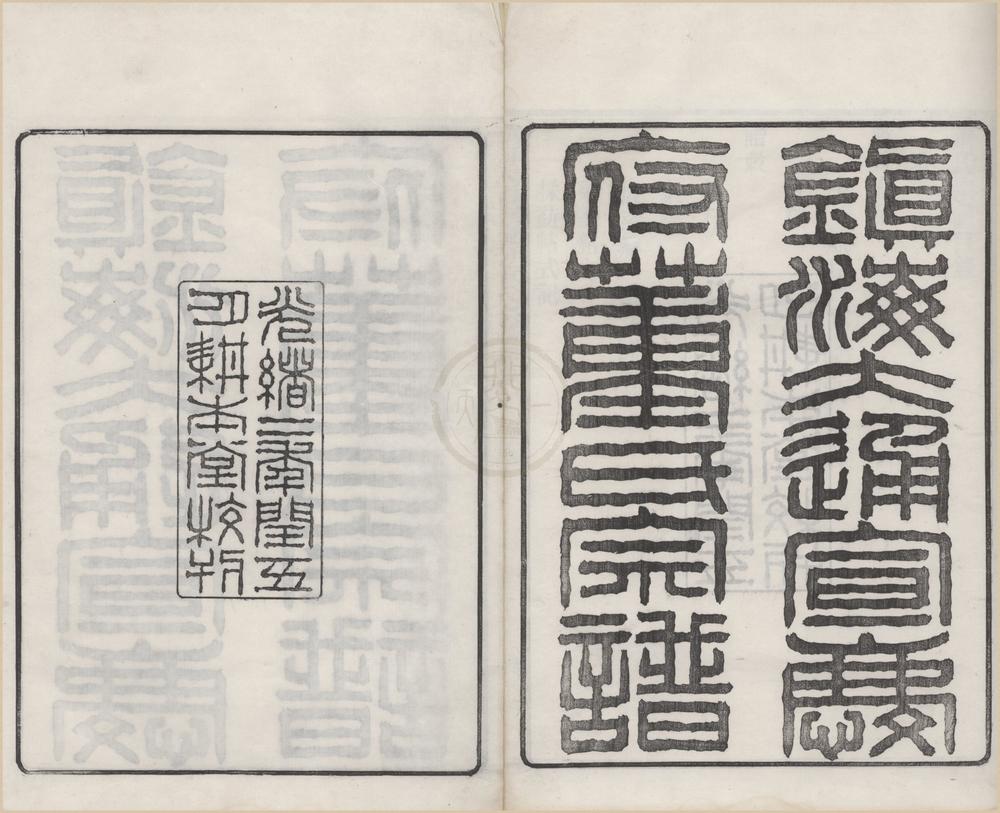 鎮海大通宣慶
府董氏宗譜
光緒二年閏五
月耕本堂校刊